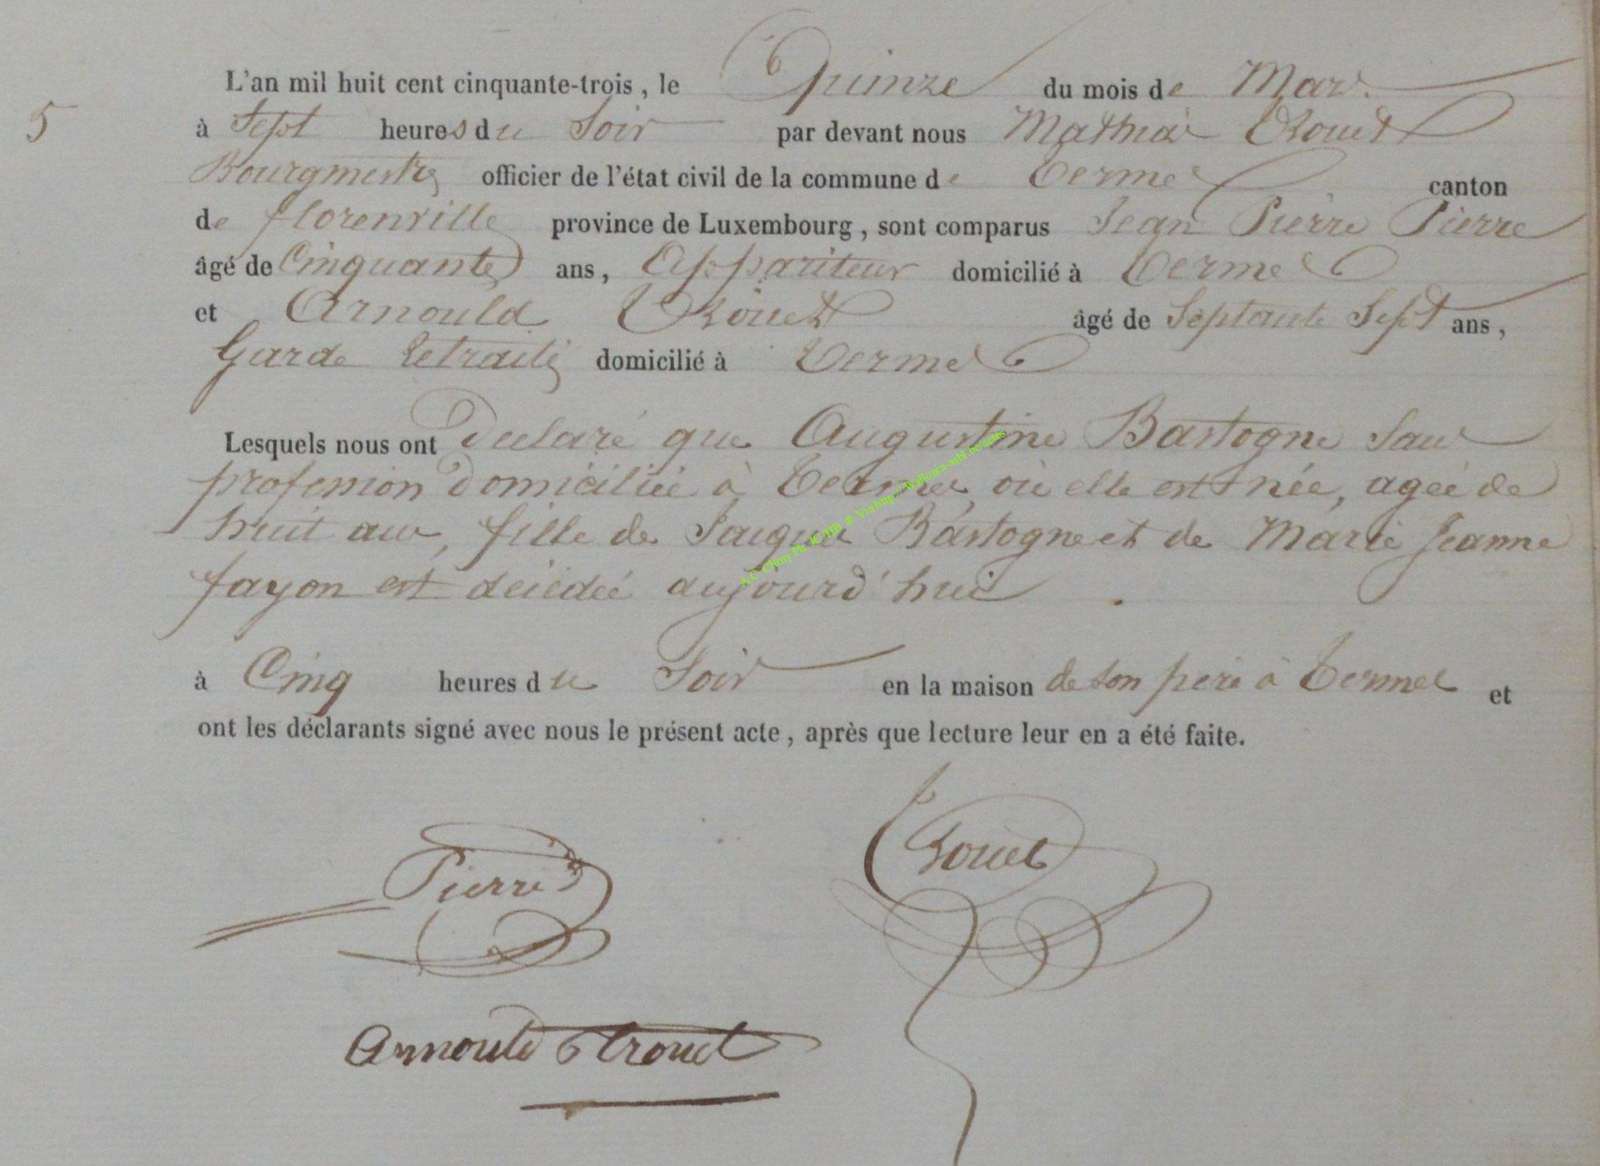 L'an mil huit cent cinquante-trois, le Quinze du mois de Mars
5
à Sept heures du Soir par devant nous Mathieu Rouet
Bourgmestre officier de l'état civil de la commune de Termes canton
de florenville province de Luxembourg, sont comparus Jean Pierre Pierre
âgé de Cinquante ans, Appariteur domicilié à Termes
et Arnould Rouet âgé de Septante Sept ans,
Garde Retraité domicilié à Termes
Lesquels nous ont Declaré que Augustine Bastogne Sans
profession domiciliée à Termes, où elle est née, agée de
huit ans, fille de Jacques Bastogne et de Marie Jeanne
fayon est décédée aujourd'hui
à Cinq heures du Soir en la maison de son père à Termes et
ont les déclarants signé avec nous le présent acte, après que lecture leur en a été faite.
Pierre
Arnould